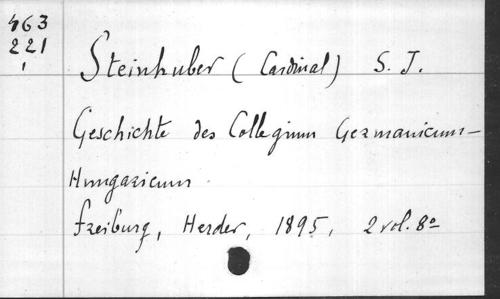 463
221
Steinhuber (Cardinal) S. J.
Geschichte des Collegium Germanicum-
Hungaricum
Freiburg, Herder, 1895, 2 vol. 8º